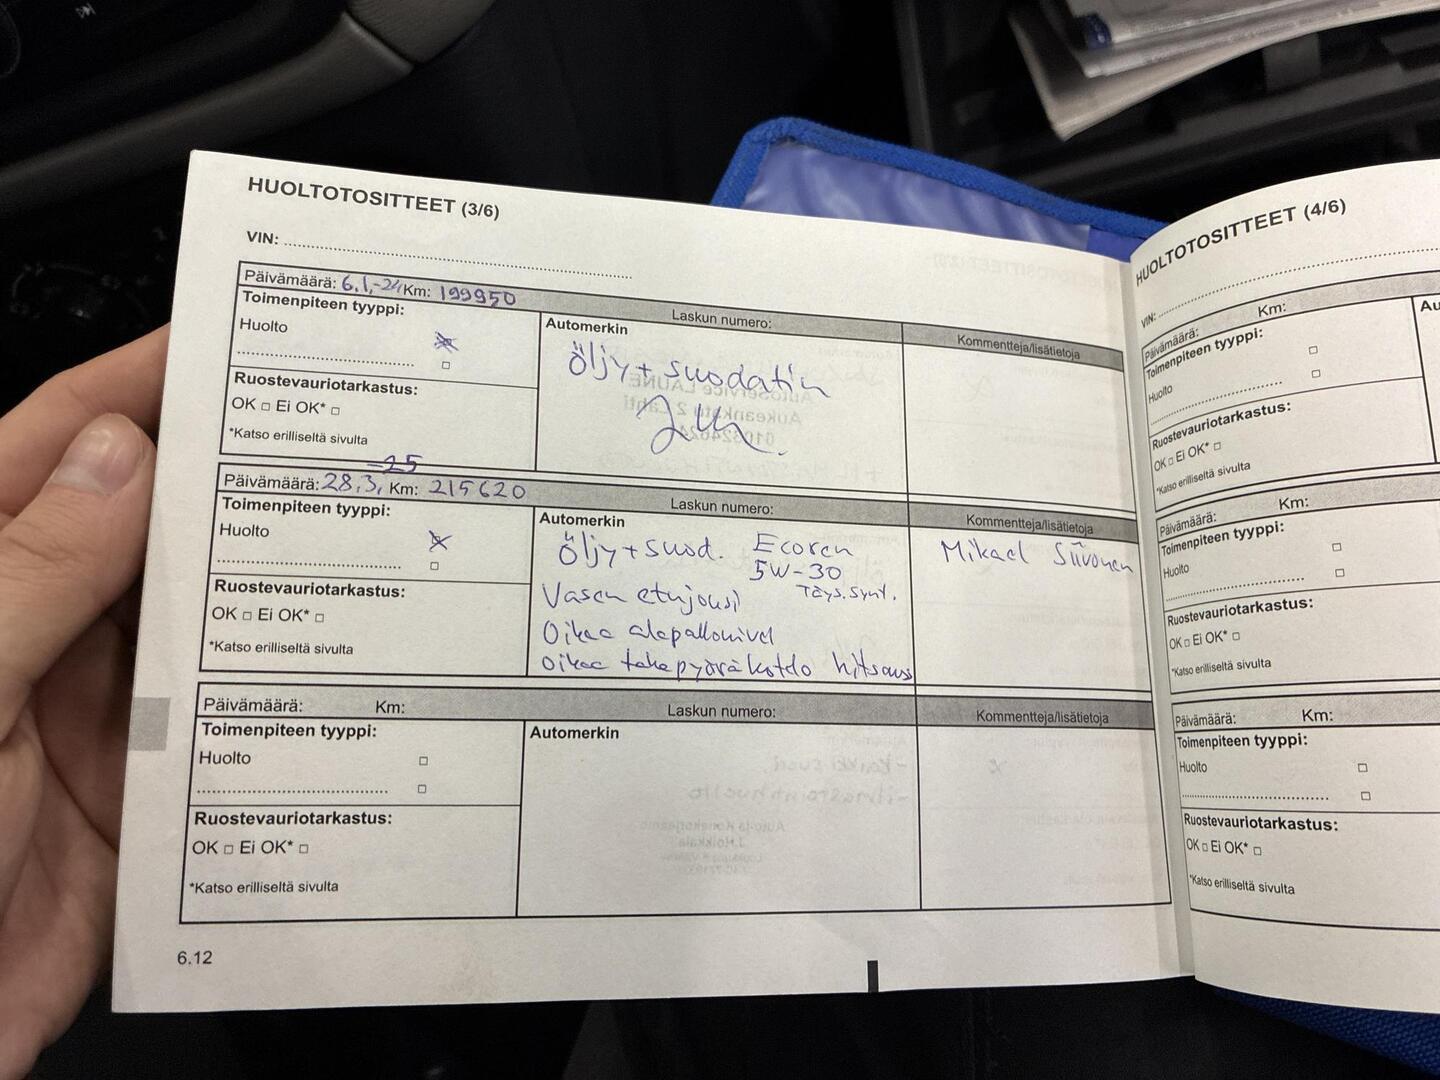 HUOLTOTOSITTEET (3/6)
VIN:
Päivämäärä: 6.1.-24 Km: 199950
Laskun numero:
Kommentteja/lisätietoja
Toimenpiteen tyyppi:
Huolto
Ruostevauriotarkastus:
OK □ Ei OK* □
*Katso erilliseltä sivulta
Automerkin
Öljy + suodatin
-25
Päivämäärä: 28.3. Km: 215620
Laskun numero:
Kommentteja/lisätietoja
Toimenpiteen tyyppi:
Huolto
Ruostevauriotarkastus:
OK □ Ei OK* □
*Katso erilliseltä sivulta
Automerkin
Öljy + suod. Ecoren
5W-30
Täys.synt.
Vasen etujousi
Oikea alapallonivel
Oikea takapyöräkotelo hitsaus
Mikael Siivonen
Päivämäärä: Km:
Laskun numero:
Kommentteja/lisätietoja
Toimenpiteen tyyppi:
Huolto
Ruostevauriotarkastus:
OK □ Ei OK* □
*Katso erilliseltä sivulta
Automerkin
6.12
HUOLTOTOSITTEET (4/6)
VIN:
Päivämäärä: Km:
Toimenpiteen tyyppi:
Huolto
Ruostevauriotarkastus:
OK □ Ei OK* □
*Katso erilliseltä sivulta
Au
Päivämäärä: Km:
Toimenpiteen tyyppi:
Huolto
Ruostevauriotarkastus:
OK □ Ei OK* □
*Katso erilliseltä sivulta
Päivämäärä: Km:
Toimenpiteen tyyppi:
Huolto
Ruostevauriotarkastus:
OK □ Ei OK* □
*Katso erilliseltä sivulta